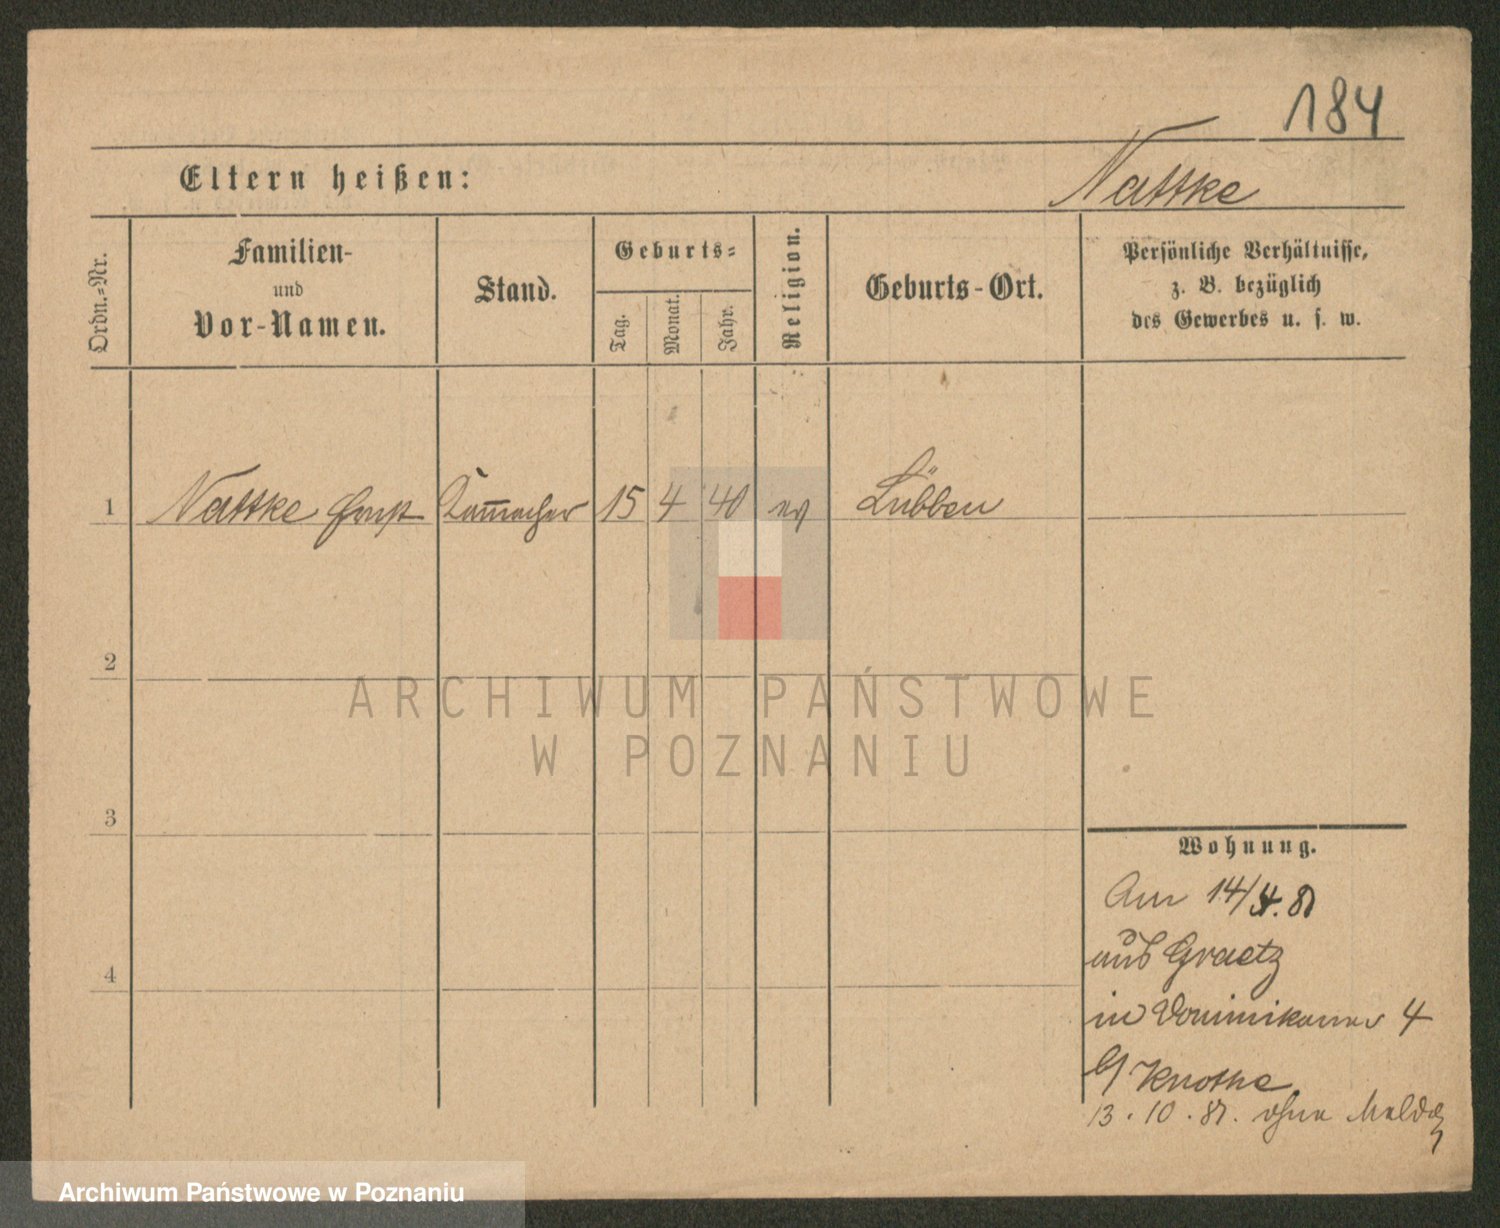 184
Eltern heißen:
Nattke
Ordn.-Nr.
Familien-
und
Vor-Namen.
Stand.
Geburts-
Tag.
Monat.
Jahr.
Religion.
Geburts-Ort.
Persönliche Verhältnisse,
z. B. bezüglich
des Gewerbes u. s. w.
1 Nattke Ernst Kam̅acher 15 4 40 ev Lübben
2
3
4
ARCHIWUM PAŃSTWOWE
W POZNANIU
Wohnung.
Am 14/4. 81
aus Graetz
in Dominikaner 4
b/ Knothe
13. 10. 81. ohne Meldg
Archiwum Państwowe w Poznaniu